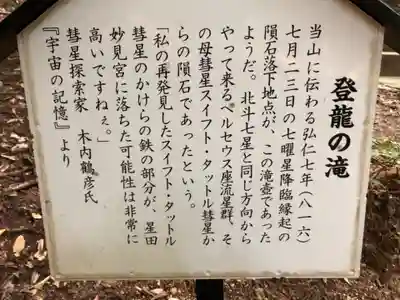 登龍の滝
当山に伝わる弘仁七年(八一六)
七月二三日の七曜星降臨縁起の
隕石落下地点が、この滝壺であった
ようだ。北斗七星と同じ方向から
やって来るペルセウス座流星群、そ
の母彗星スイフト・タットル彗星か
らの隕石であったという。
「私の再発見したスイフト・タットル
彗星のかけらの鉄の部分が、星田
妙見宮に落ちた可能性は非常に
高いですねぇ。」
彗星探索家 木内鶴彦氏
『宇宙の記憶』より